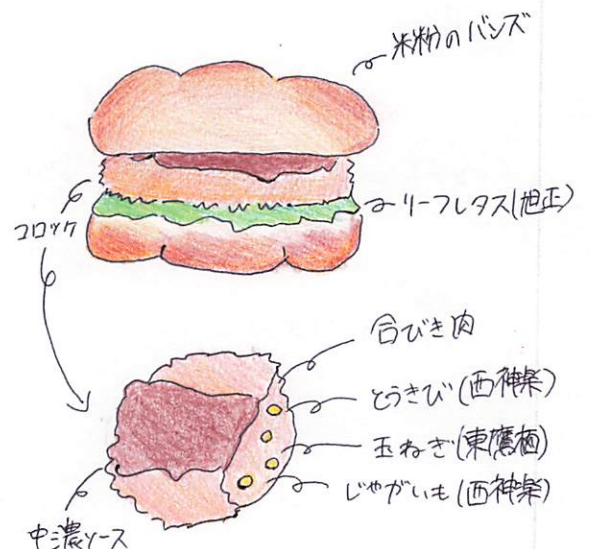 米粉のバンズ
リーフレタス(旭正)
コロッケ
合びき肉
とうきび(西神楽)
玉ねぎ(東鷹栖)
じゃがいも(西神楽)
中濃ソース